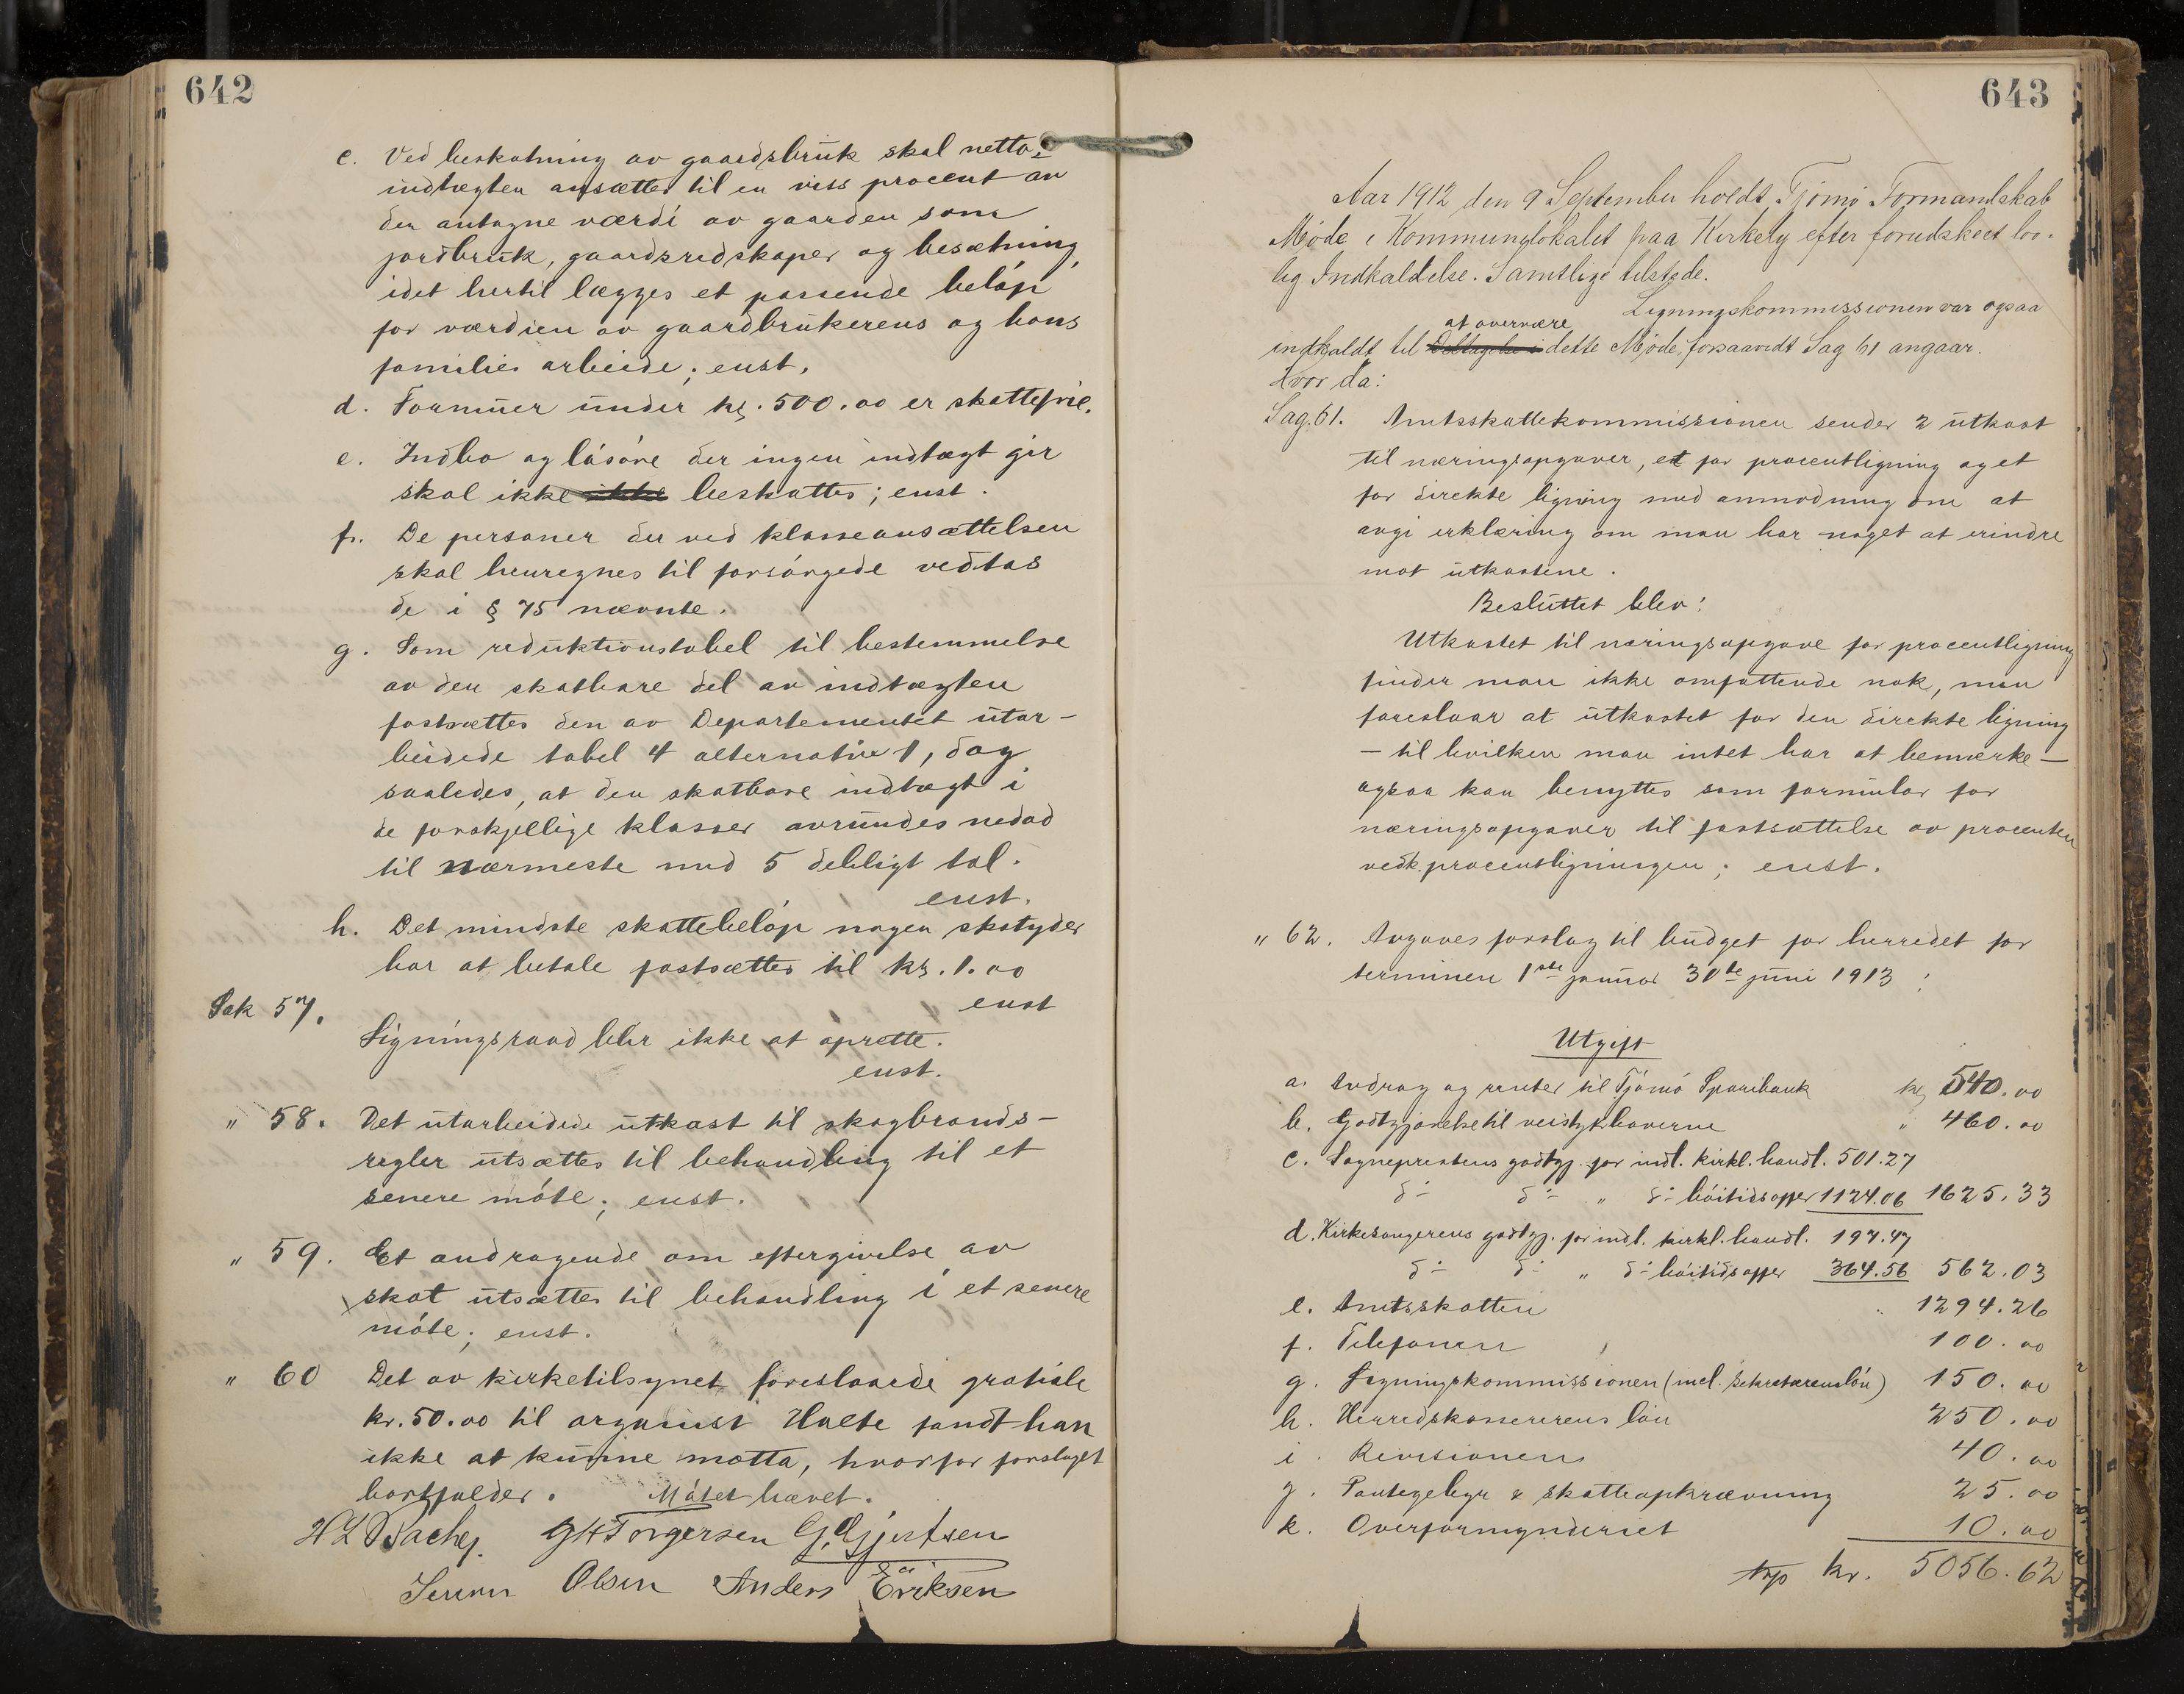 642
c. Ved beskatning av gaardsbruk skal netto-
indtægten ansættes til en viss procent av
den antagne værdi av gaarden som
jordbruk, gaardsredskaper og besætning,
idet hertil lægges et passende beløp
for værdien av gaardbrukerens og hans
families arbeide; enst.
d. Formuer under kr. 500.00 er skattefrie.
e. Indbo og løsøre der ingen indtægt gir
skal ikke ikke beskattes; enst.
f. De personer der ved klasseansættelsen
skal henregnes til forsørgede vedtas
de i § 75 nævnte.
g. Som reduktionstabel til bestemmelse
av den skatbare del av indtægten
fastsættes den av Departementet utar-
beidede tabel 4 alternativ 1, dog
saaledes, at den skatbare indtægt i
de forskjellige klasser avrundes nedad
til nærmeste med 5 deleligt tal.
enst.
h. Det mindste skattebeløp nogen skatyder
har at betale fastsættes til kr. 1.00
enst
Sak 57.
Ligningsraad blir ikke at oprette.
enst.
" 58. Det utarbeidede utkast til skogbrands-
regler utsættes til behandling til et
senere møte; enst.
" 59. Et andragende om eftergivelse av
skat utsættes til behandling i et senere
møte; enst.
" 60 Det av kirketilsynet foreslaaede gratiale
kr. 50.00 til organist Holte fandt han
ikke at kunne motta, hvorfor forslaget
bortfalder. Møtet hævet.
H L Bache. G H Torgersen G. Gjertsen
Olsen Anders Eriksen
643
Aar 1912 den 9 September holdt Tjømø Formandskab
Møde i Kommunelokalet paa Kirkely efter forudskeet lov-
lig Indkaldelse. Samtlige tilstede.
Ligningskommissionen var ogsaa
at overvære
indkaldt til Deltagelse i dette Møde, forsaavidt Sag 61 angaar.
Hvor da:
Sag. 61. Amtsskattekommissionen sender 2 utkast
til næringsopgaver, et for procentligning og et
for direkte ligning med anmodning om at
avgi erklæring om man har noget at erindre
mot utkastene.
Besluttet blev:
Utkastet til næringsopgave for procentligning
finder man ikke omfattende nok, men
foreslaar at utkastet for den direkte ligning
– til hvilken man intet har at bemærke –
ogsaa kan benyttes som formular for
næringsopgaver til fastsættelse av procenten
vedk. procentligningen; enst.
" 62. Avgaves forslag til budget for herredet for
terminen 1ste januar 30te juni 1913:
Utgift
a. Avdrag og renter til Tjømø Sparebank kr 540.00
b. Godtgjørelse til veistykhaverne " 460.00
c. Sogneprestens godtgj. for indl. kirkl. handl. 501.27
do do " do høitidsoffer 1124.06 1625.33
d. Kirkesangerens godtgj. for indl. kirkl. handl. 197.47
do do " do høitidsoffer 364.56 562.03
e. Amtsskatten " 1294.26
f. Telefonen 100.00
g. Ligningskommissionen (incl. sekretærens løn) 150.00
h. Herredskassererens løn 250.00
i. Revisionen 40.00
j. Pantegebyr & skatteopkrævning 25.00
k. Overformynderiet 10.00
trp kr. 5056.62